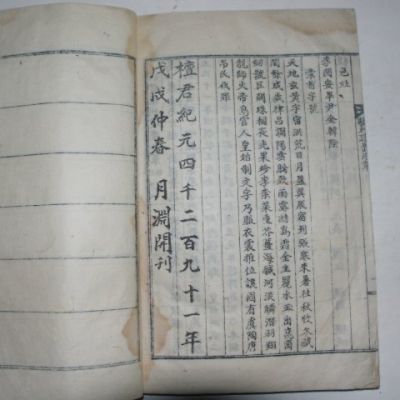 邑姓
李 安 尹金韓
字號
天地玄黃宇宙洪荒日月盈昃辰宿列張寒來暑往秋收冬藏
閏餘成歲律呂調陽雲騰致雨露結爲霜金生麗水玉出崑岡
劍號巨闕珠稱夜光果珍李柰菜重芥薑海鹹河淡鱗潛羽翔
龍師火帝鳥官人皇始制文字乃服衣裳推位讓國有虞陶唐
吊民伐罪
檀君紀元四千二百九十一年
戊戌仲春 月淵開刊